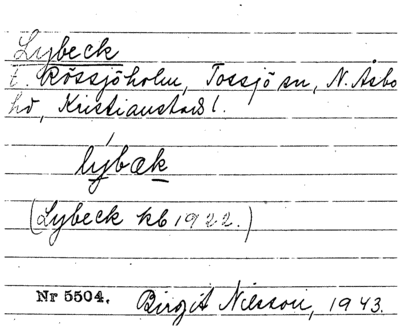 Lybeck
t. Rössjöholm, Tossjö sn, N. Åsbo
hd, Kristianstads l.
lýbæk
(Lybeck kb 1922.)
Nr 5504. Birgit Nilsson, 1943.